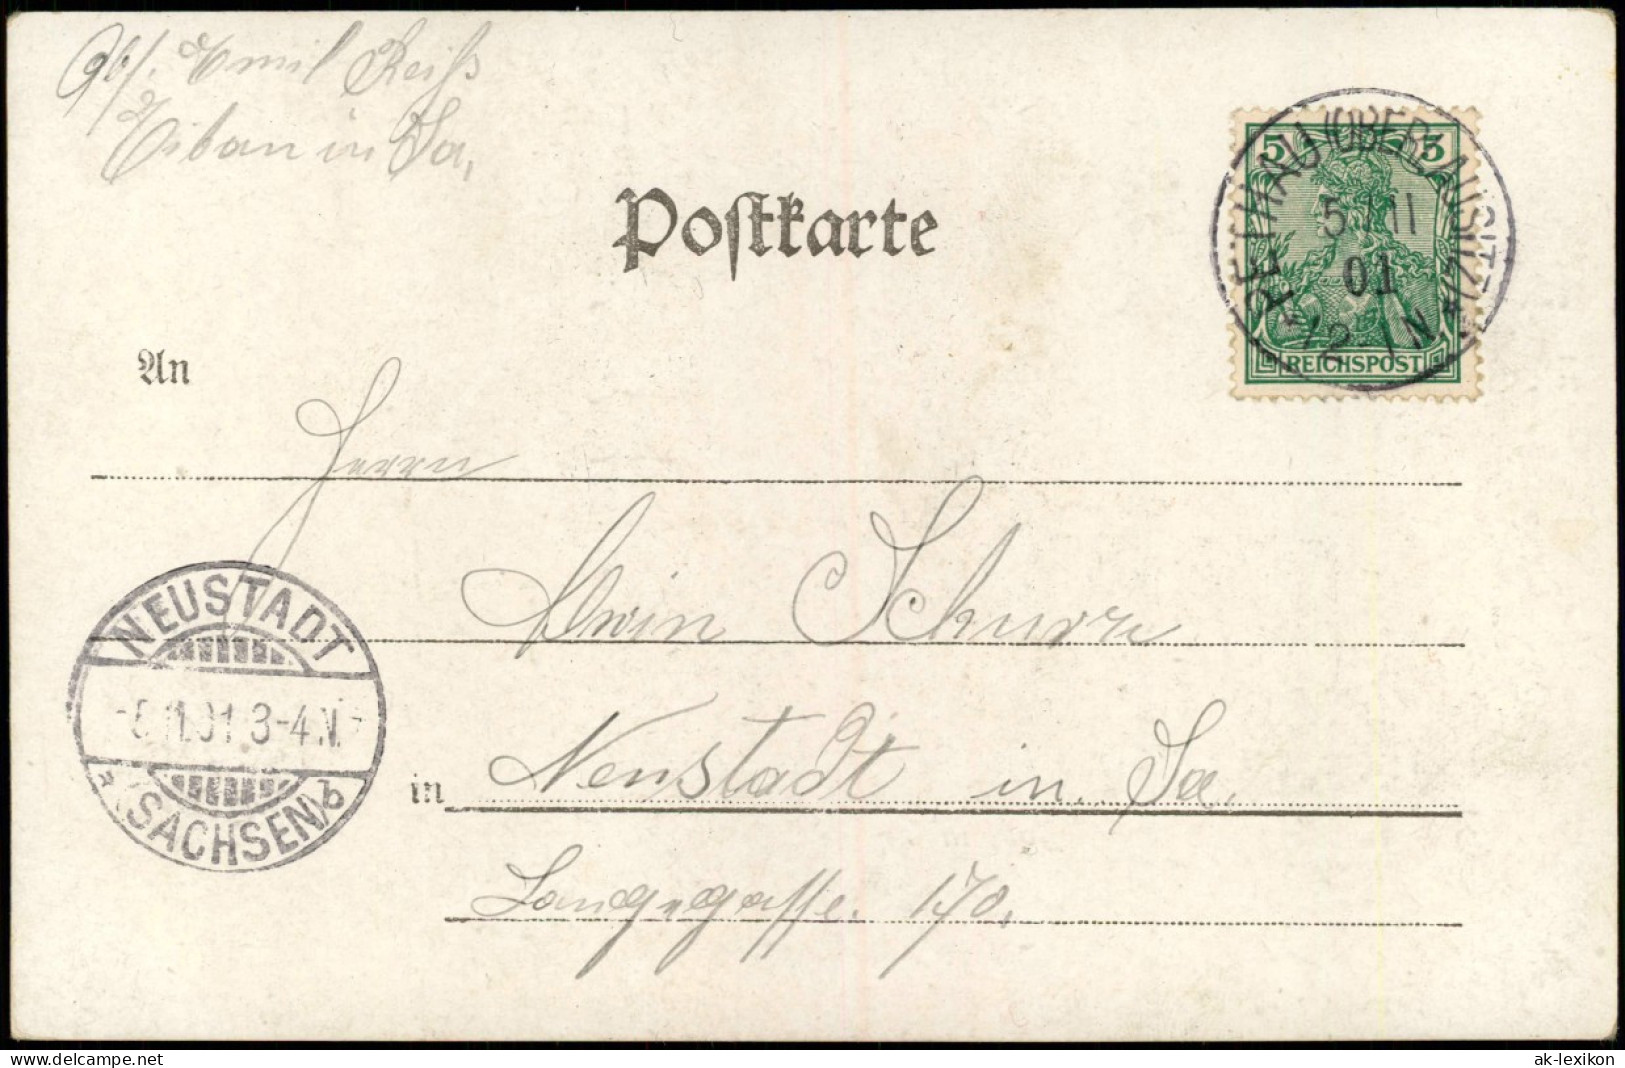 Abs. Emil Reiß
Eibau in Sa.
Postkarte
5 5
(OBERLAUSITZ)
5 / 11
01
12-1 N.
REICHSPOST
An
Herrn
Alwin Schurz
NEUSTADT
-5.11.01 3-4.N.
(SACHSEN)
a b
in Neustadt in Sa.
Langegasse. 170.
ak-lexikon
delcampe.net